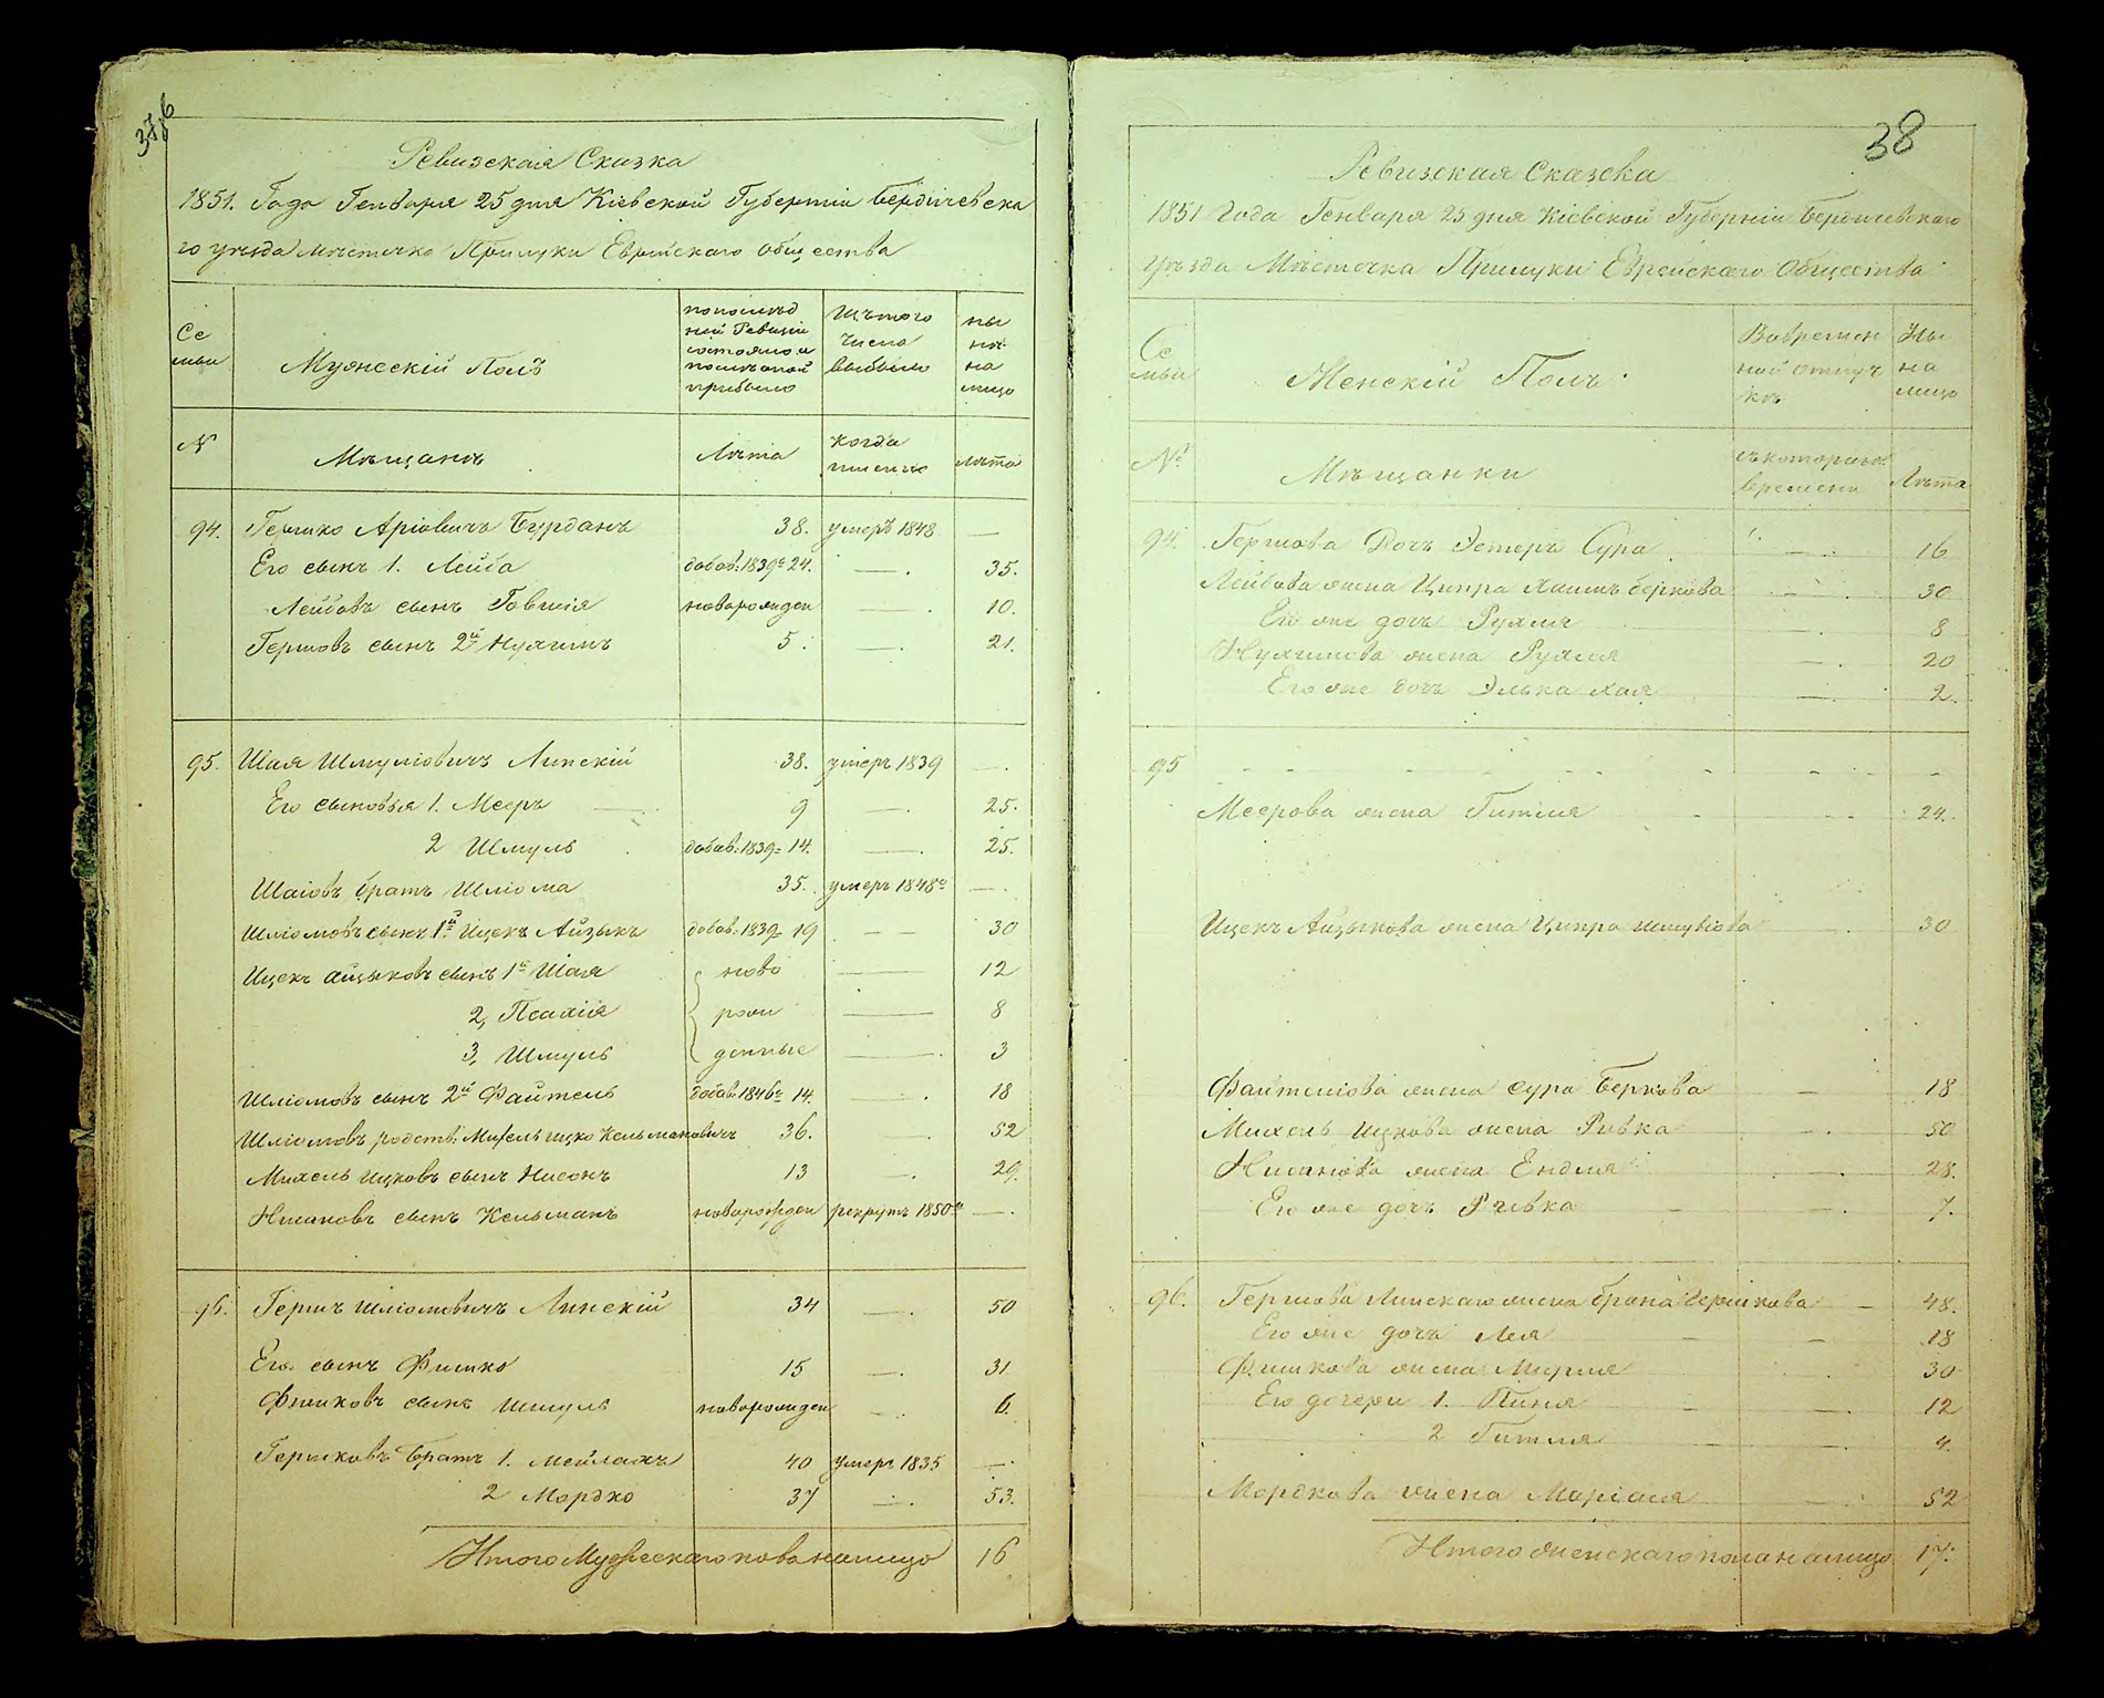 37б
Ревизская Сказка
1851. Года Генваря 25 дня Кіевской Губерніи Бердичевска
го уѣзда Мѣстечка Прилуки Еврейскаго общества
Се
мьи
Мужескій Полъ
по послѣд
ней Ревизіи
состояло и
послѣ оной
прибыло
Изъ того
числа
выбыло
ны
нѣ
на
лицо
№
Мѣщанъ
Лѣта
когда
именно
лѣта
94. Гершко Аріовичъ Бурданъ 38. умеръ 1848 —
Его сынъ 1. Лейба добав: 1839го 24. — 35.
Лейбовъ сынъ Говшія новорожден — 10.
Гершовъ сынъ 2й Нухимъ 5. — 21.
95. Шая Шмуліовичъ Липскій 38. умеръ 1839 —
Его сыновья 1. Мееръ 9 — 25.
2 Шмуль добав: 1839 14. — 25.
Шаіовъ братъ Шліома 35. умеръ 1848го —
Шліомовъ сынъ 1й Ицекъ Айзыкъ добав: 1839 19 — 30
Ицекъ Айзыковъ сынъ 1й Шая ново — 12
2, Псахія рож — 8
3, Шмуль денные — 3
Шліомовъ сынъ 2й Файтель добав: 1846го 14. — 18
Шліомовъ родств: Михель Ицко Кельмановичъ 36. — 52
Михель Ицковъ сынъ Нисонъ 13 — 29.
Нисановъ сынъ Кельманъ новорожден рекрутъ 1850го —
96. Гершъ Шліомовичъ Липскій 34 — 50
Его сынъ Фишко 15 — 31
Фишковъ сынъ Шмуль новорожден — 6.
Гершковъ братъ 1. Мейлахъ 40 умеръ 1835 —
2 Мордко 37 — 53.
Итого Мужескаго пола на лицо 16
38
Ревизская Сказка
1851 Года Генваря 25 дня Кіевской Губерніи Бердичевскаго
Уѣзда Мѣстечка Прилуки Еврейскаго Общества
Се
мьи
Женскій Полъ
Во времен
ной отлуч
кѣ
Ны
на
лицо
№
Мѣщанки
съ котораго
времени
Лѣта
94. Гершова Дочь Эстеръ Сура — 16
Лейбова жена Ципра Беркова — 30
Его же дочь Рухля — 8
Нухимова жена Рухля — 20
Его же дочь Элька Хая — 2.
95 - - - - - -
Меерова жена Гитля - - 24.
Ицекъ Айзыкова жена Ципра — 30
Файтеліова жена Сура Беркова — 18
Михель Ицкова жена Ривка — 50
Нисанова жена Ендля — 28.
Его же дочь Ривка — 7.
96. Гершова Липскаго жена Брана Гершкова — 48.
Его же дочь Лея — 18
Фишкова жена Мирля 30
Его дочери 1. Пиня — 12
2 Гитля — 4.
Мордкова жена Маріася — 52
Итого женскаго пола на лицо 17.